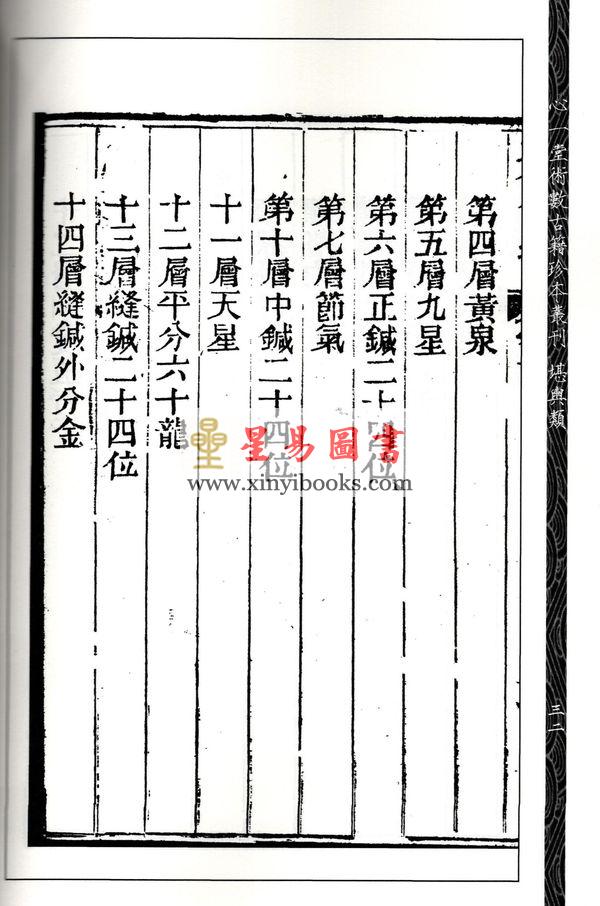 心一堂術數古籍珍本叢刊 堪輿類
三二
第四層黃泉
第五層九星
第六層正鍼二十四位
第七層節氣
第十層中鍼二十四位
十一層天星
十二層平分六十龍
十三層縫鍼二十四位
十四層縫鍼外分金
星易圖書
www.xinyibooks.com